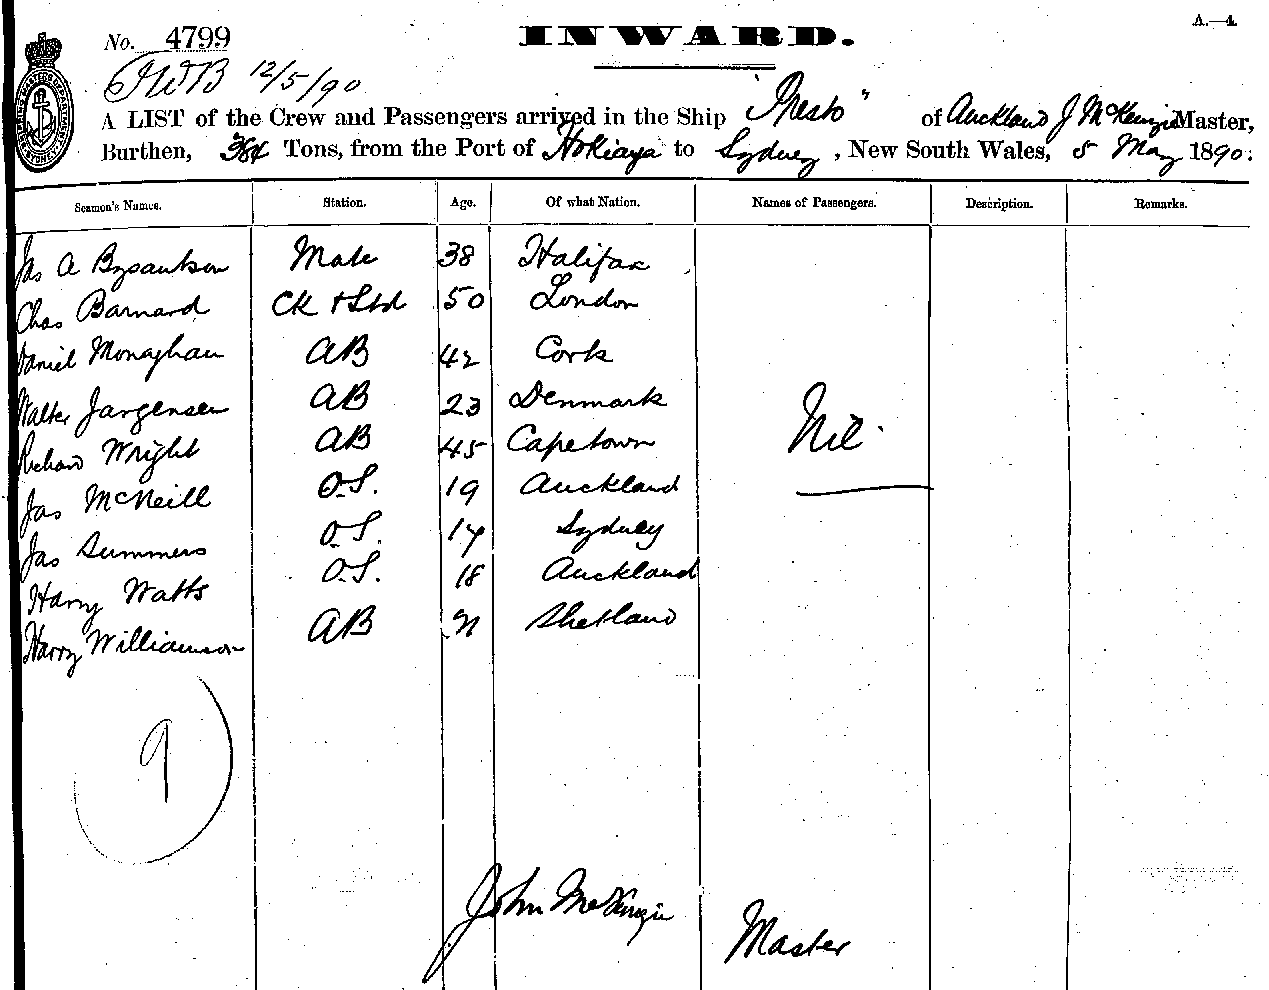 A.—4.
No. 4799
INWARD.
JWB 12/5/90
A LIST of the Crew and Passengers arrived in the Ship "Presto" of Auckland J McKenzie Master,
Burthen, Tons, from the Port of to Sydney, New South Wales, 5 May 1890.
Seamen's Names. Station. Age. Of what Nation. Names of Passengers. Description. Remarks.
Jas A Mate 38 Halifax
Chas Barnard Ck & Std 50 London
Daniel Monaghan AB 42 Cork
Walter Jargensen AB 23 Denmark
Richard Wright AB 45 Capetown Nil
Jas McNeill O.S. 19 Auckland
Jas Summers O.S. 17 Sydney
Harry Watts O.S. 18 Auckland
Harry Williamson AB Shetland
9
John McKenzie
Master